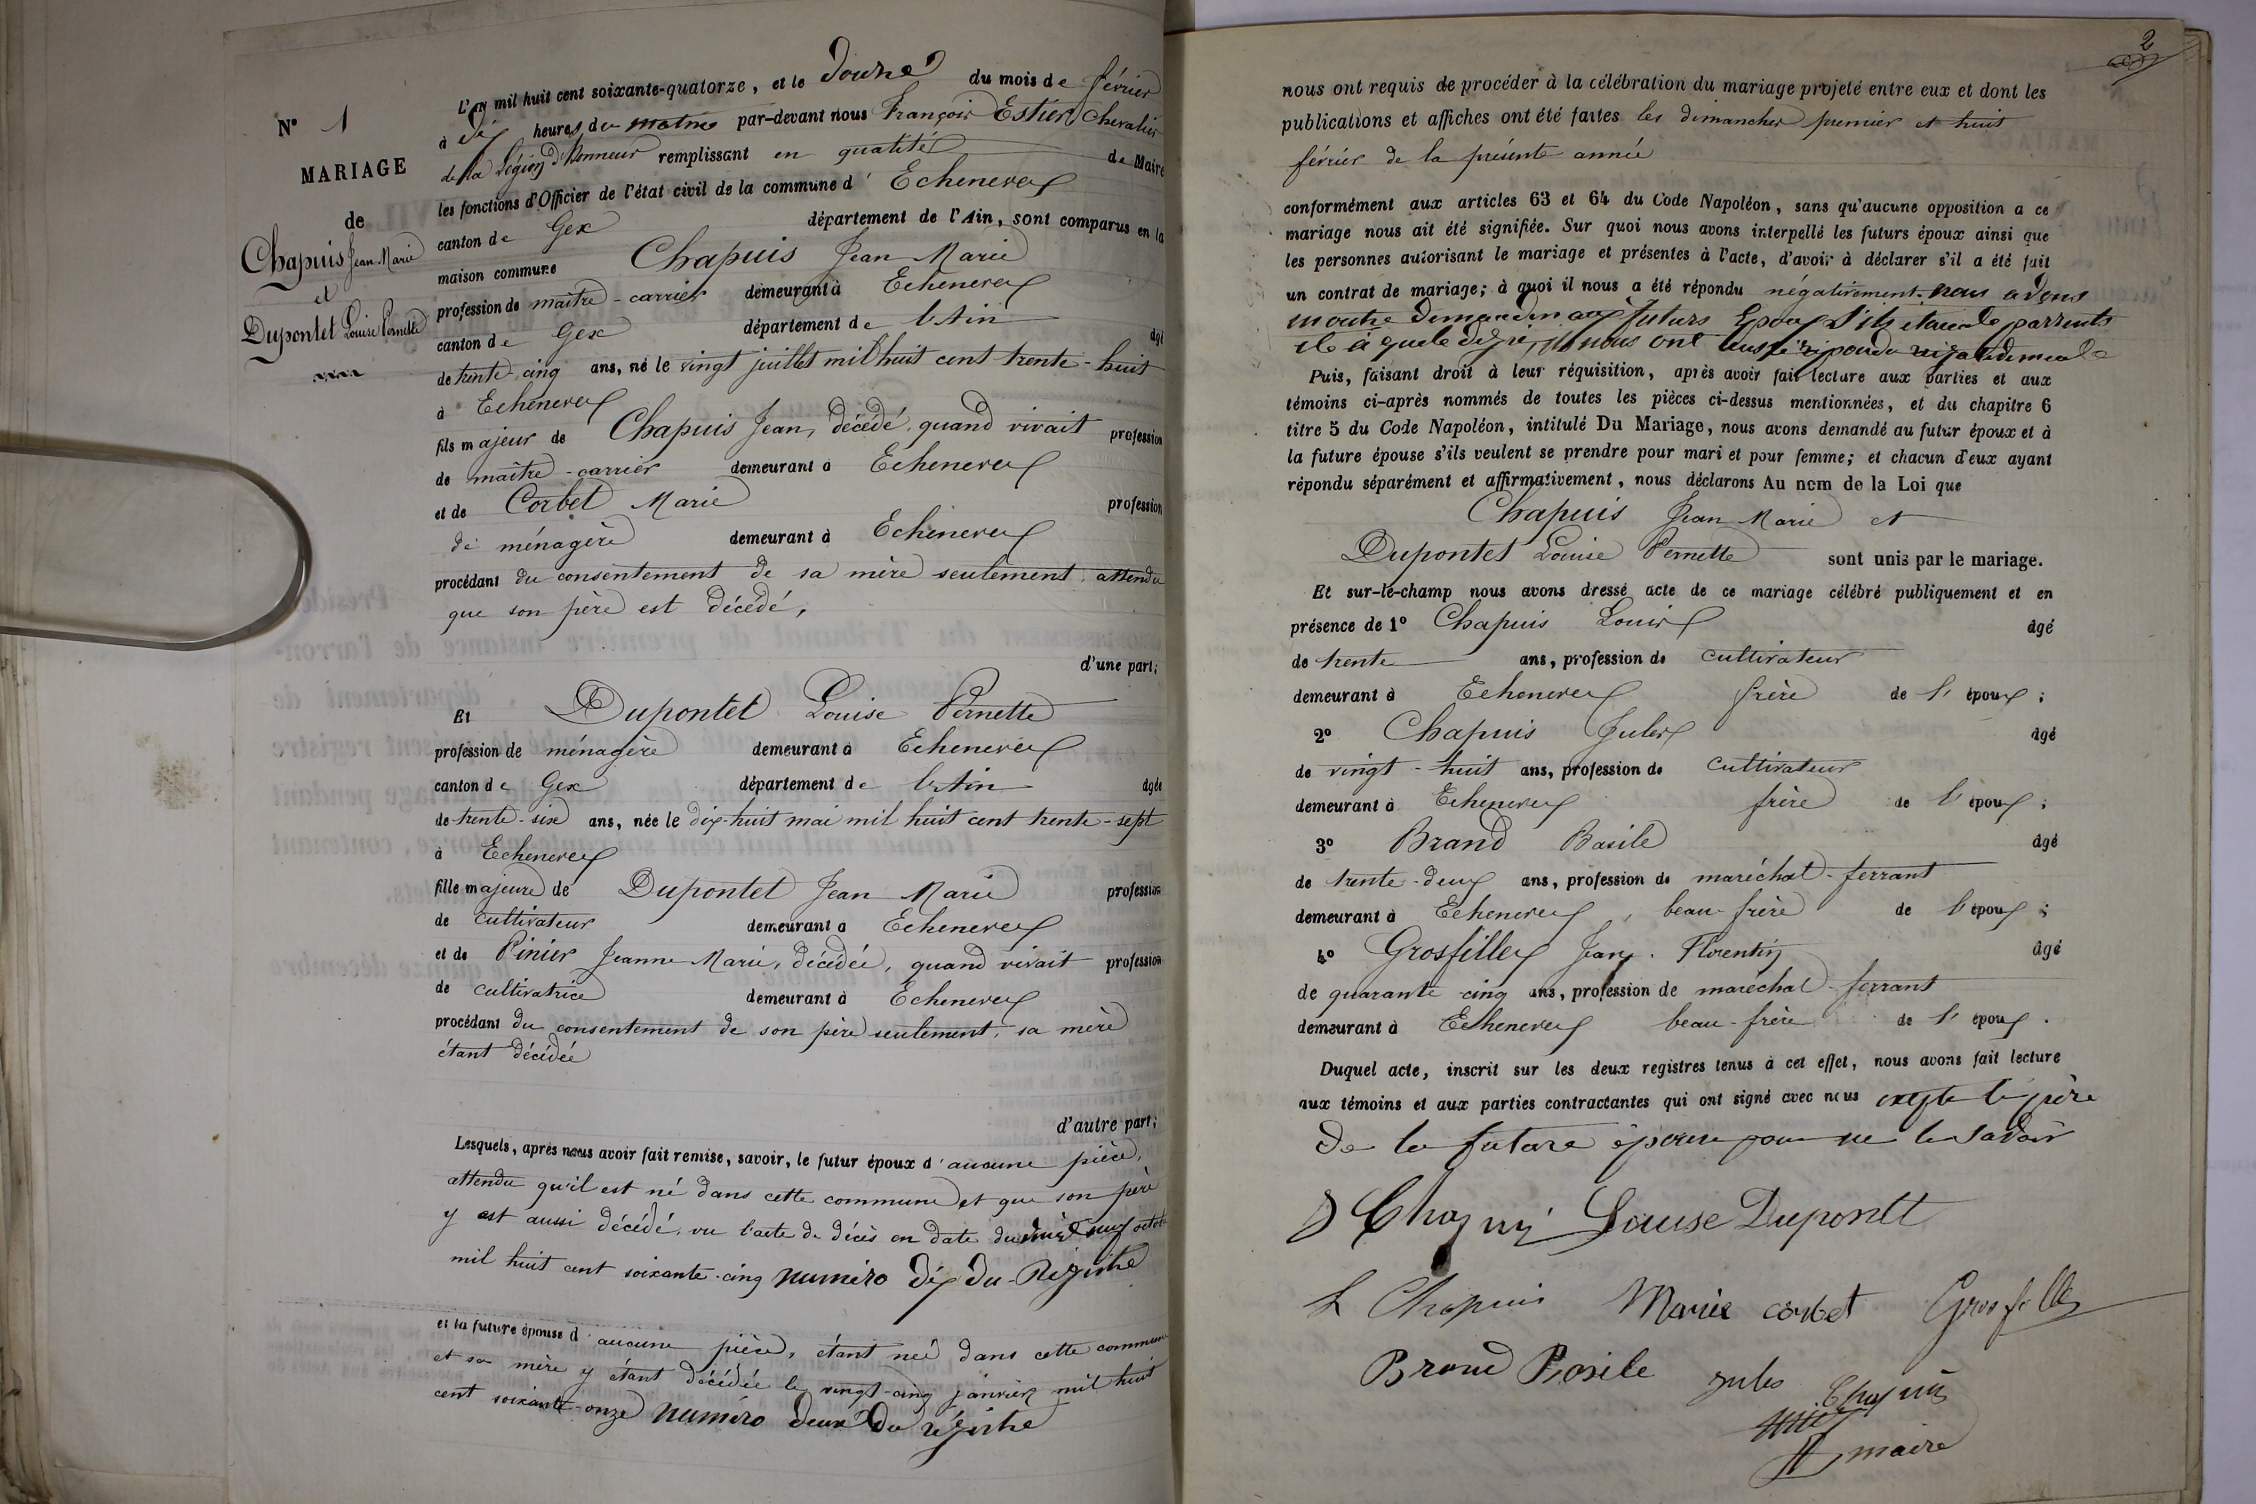 N° 1
MARIAGE
de
Chapuis Jean Marie
et
Dupontet Louise Pernette
L'an mil huit cent soixante-quatorze, et le douze du mois de février
à dix heures du matin par-devant nous François Estier Chevalier
de la Légion d'honneur remplissant en qualité de Maire
les fonctions d'Officier de l'état civil de la commune d'Echenevex
canton de Gex département de l'Ain, sont comparus en la
maison commune Chapuis Jean Marie
profession de maître-carrier demeurant à Echenevex
canton de Gex département de l'Ain âgé
de trente-cinq ans, né le vingt juillet mil huit cent trente-huit
à Echenevex
fils majeur de Chapuis Jean, décédé, quand vivait profession
de maître-carrier demeurant à Echenevex
et de Corbet Marie profession
de ménagère demeurant à Echenevex
procédant du consentement de sa mère seulement, attendu
que son père est décédé,
d'une part;
Et Dupontet Louise Pernette
profession de ménagère demeurant à Echenevex
canton de Gex département de l'Ain âgée
de trente-six ans, née le dix-huit mai mil huit cent trente-sept
à Echenevex
fille majeure de Dupontet Jean Marie profession
de cultivateur demeurant à Echenevex
et de Pinier Jeanne Marie, décédée, quand vivait profession
de cultivatrice demeurant à Echenevex
procédant du consentement de son père seulement, sa mère
étant décédée
d'autre part;
Lesquels, après nous avoir fait remise, savoir, le futur époux d'aucune pièce,
attendu qu'il est né dans cette commune et que son père
y est aussi décédé, vu l'acte de décès en date du neuf octobre
mil huit cent soixante-cinq numéro dix du Régistre
et la future épouse d'aucune pièce, étant née dans cette commune
et sa mère y étant décédée le vingt-cinq janvier mil huit
cent soixante-onze numéro deux du régistre
2
nous ont requis de procéder à la célébration du mariage projeté entre eux et dont les
publications et affiches ont été faites les dimanches premier et huit
février de la présente année
conformément aux articles 63 et 64 du Code Napoléon, sans qu'aucune opposition a ce
mariage nous ait été signifiée. Sur quoi nous avons interpellé les futurs époux ainsi que
les personnes autorisant le mariage et présentes à l'acte, d'avoir à déclarer s'il a été fait
un contrat de mariage; à quoi il nous a été répondu négativement. nous avons
en outre demandé aux futurs Epoux s'ils étaient parrents
et à quele degré, ils nous ont aussi répondu négativement
Puis, faisant droit à leur réquisition, après avoir fait lecture aux parties et aux
témoins ci-après nommés de toutes les pièces ci-dessus mentionnées, et du chapitre 6
titre 5 du Code Napoléon, intitulé Du Mariage, nous avons demandé au futur époux et à
la future épouse s'ils veulent se prendre pour mari et pour femme; et chacun d'eux ayant
répondu séparément et affirmativement, nous déclarons Au nom de la Loi que
Chapuis Jean Marie et
Dupontet Louise Pernette sont unis par le mariage.
Et sur-le-champ nous avons dressé acte de ce mariage célébré publiquement et en
présence de 1° Chapuis Louis âgé
de trente ans, profession de cultivateur
demeurant à Echenevex frère de l'époux;
2° Chapuis Jules âgé
de vingt-huit ans, profession de cultivateur
demeurant à Echenevex frère de l'époux;
3° Brand Basile âgé
de trente-deux ans, profession de maréchal-ferrant
demeurant à Echenevex, beau-frère de l'époux;
4° Grosfillex Jean Florentin âgé
de quarante-cinq ans, profession de maréchal-ferrant
demeurant à Echenevex beau-frère de l'époux.
Duquel acte, inscrit sur les deux registres tenus à cet effet, nous avons fait lecture
aux témoins et aux parties contractantes qui ont signé avec nous excepte le père
de la future épouse pour ne le savoir
Chapuis Louise Dupontt
L Chapuis Marie corbet Grosfillex
Brand Basile Jules Chapuis
maire